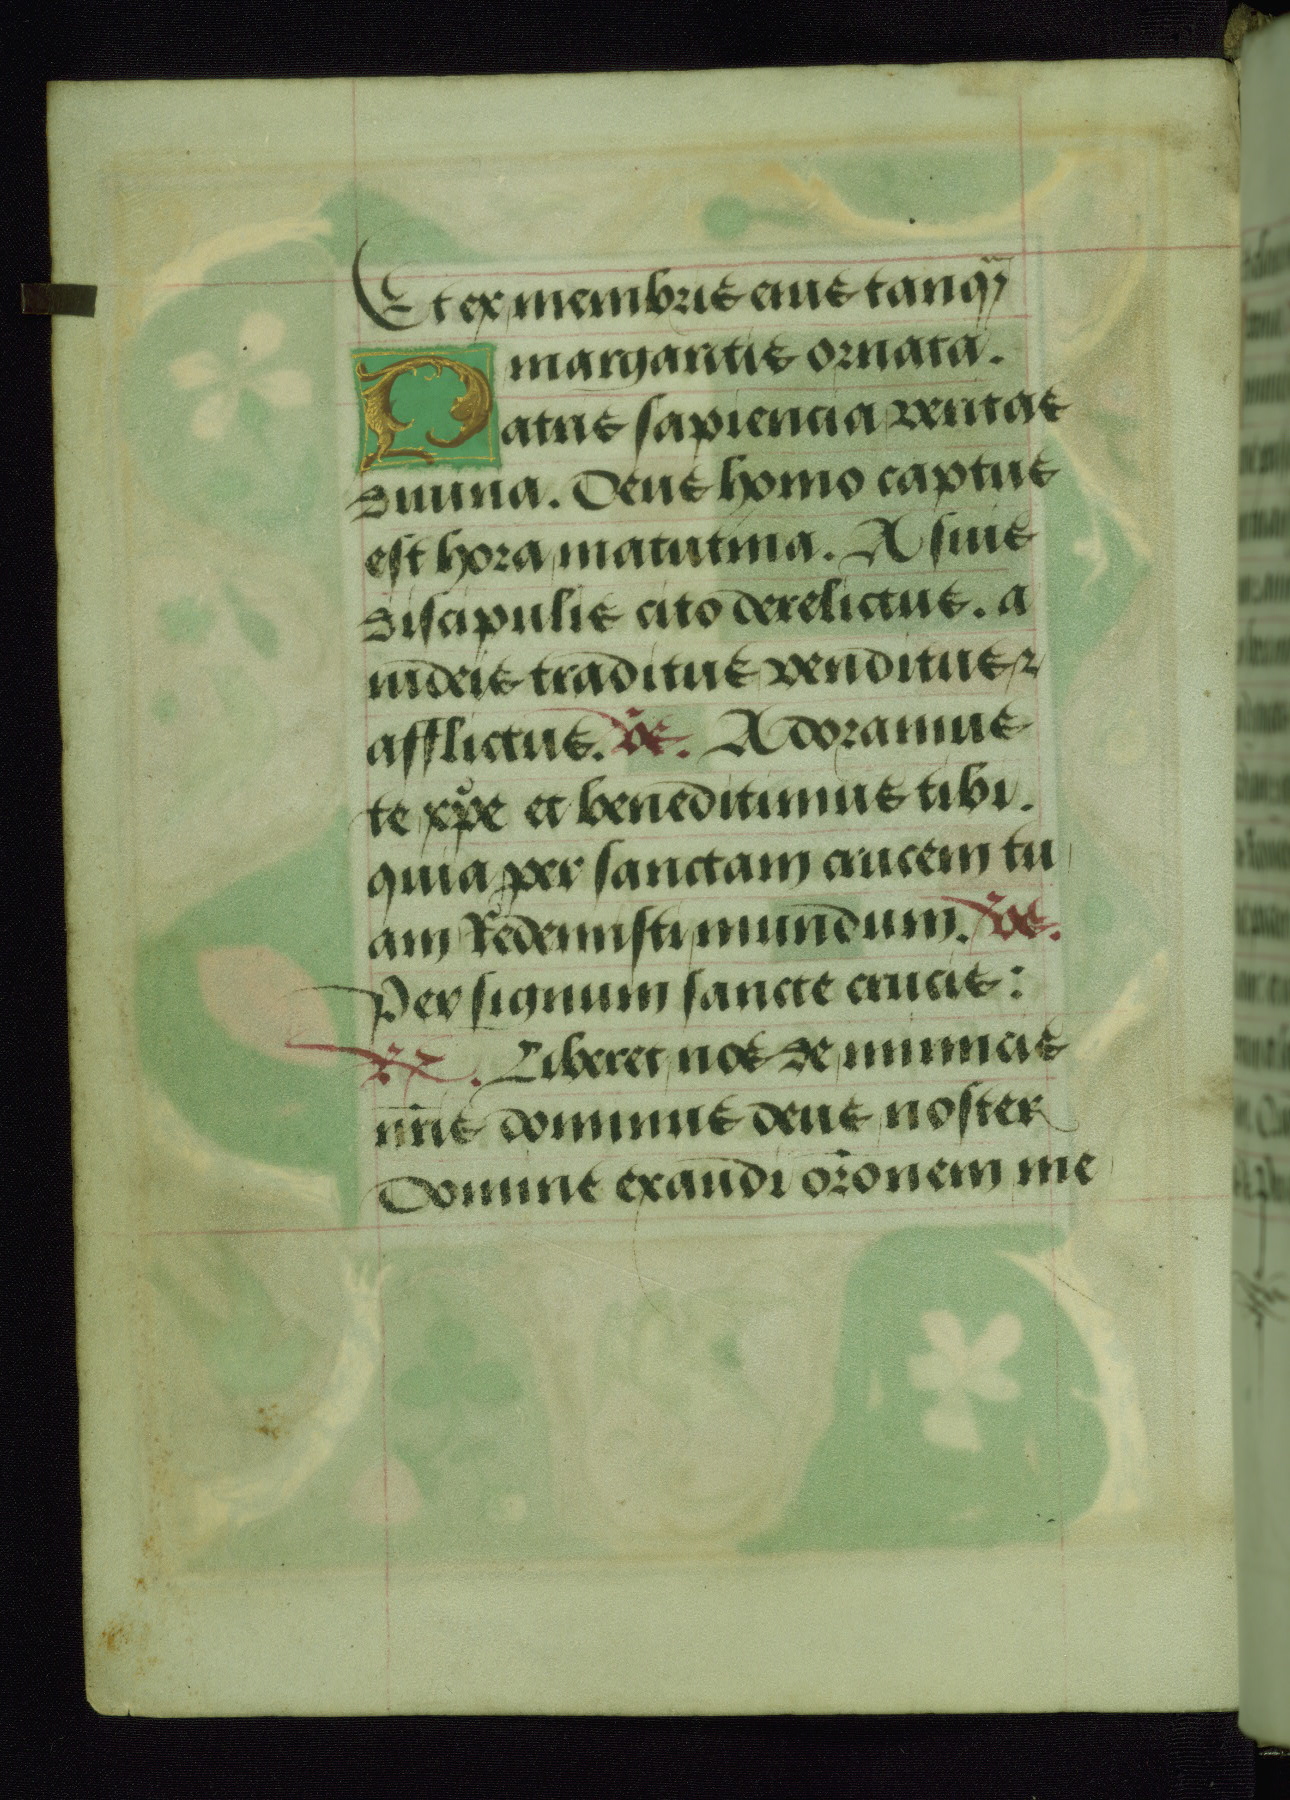 Et ex membris eius tanq̃
margaritis ornata.
Patris sapiencia veritas
diuina. Deus homo captus
est hora matutina. A suis
discipulis cito derelictus. a
iudeis traditus venditus ⁊
afflictus. v̄s. Adoramus
te xp̄e et beneditimus tibi.
quia per sanctam crucem tu
am Redemisti mundum. v̄s.
Per signum sancte crucis:
Liberet nos de inimicis
nr̄is dominus deus noster
Domine exaudi or̄onem me